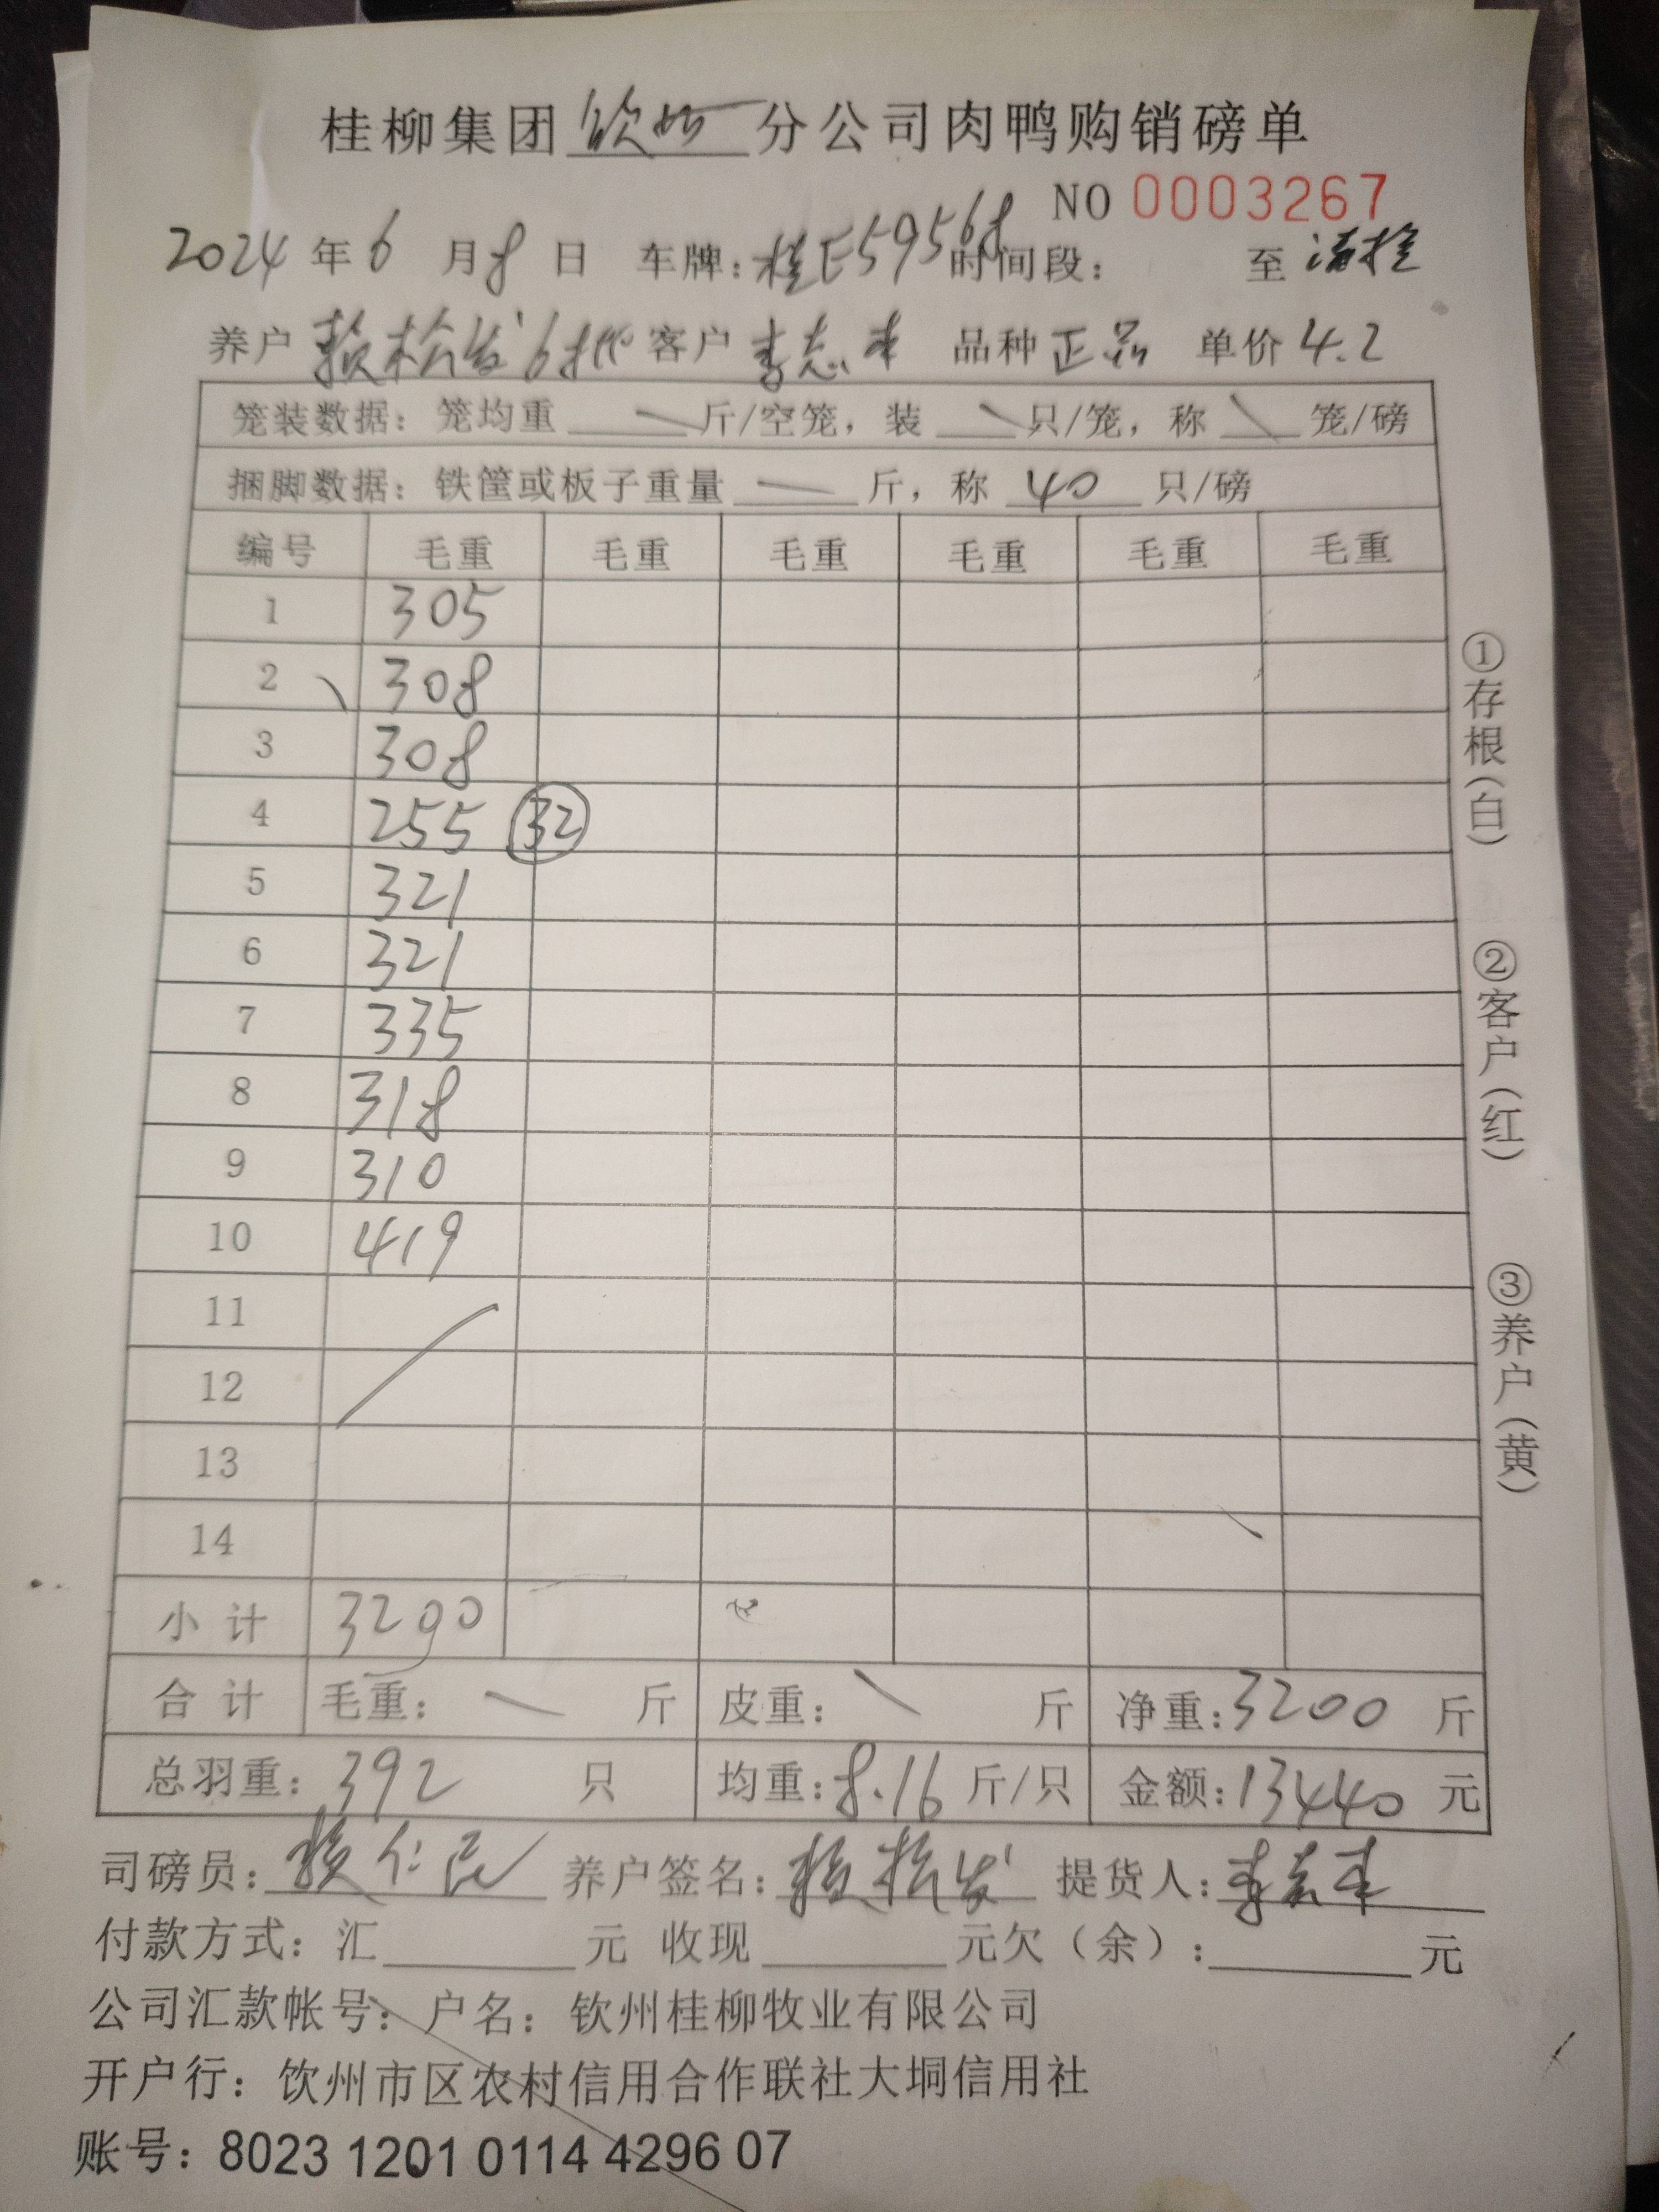 桂柳集团钦州分公司肉鸭购销磅单
NO 0003267
2024年6月8日 车牌：桂E59568 时间段： 至 清栏
养户 赖松发 6批 客户 李志丰 品种 正品 单价 4.2
笼装数据：笼均重 — 斤/空笼，装 — 只/笼，称 \ 笼/磅
捆脚数据：铁筐或板子重量 — 斤，称 40 只/磅
编号 毛重 毛重 毛重 毛重 毛重 毛重
1 305
2 308
3 308
4 255 32
5 321
6 321
7 335
8 318
9 310
10 419
11
12
13
14
小计 3200
合计 毛重： — 斤 皮重： \ 斤 净重：3200 斤
总羽重：392 只 均重：8.16 斤/只 金额：13440 元
司磅员：赖仁民 养户签名：赖松发 提货人：李志丰
付款方式：汇 元 收现 元欠（余）： 元
公司汇款帐号：户名：钦州桂柳牧业有限公司
开户行：饮州市区农村信用合作联社大垌信用社
账号：8023 1201 0114 4296 07
①存根（白）
②客户（红）
③养户（黄）